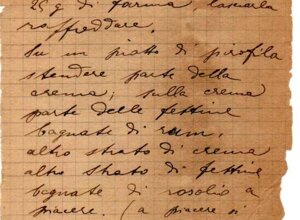 25 g di farina lasciarla
raffreddare.
Su un piatto di pirofila
stendere parte della
crema; sulla crema
parte delle fettine
bagnate di rum,
altro strato di crema
altro strato di fettine
bagnate di rosolio a
piacere. (a piacere si